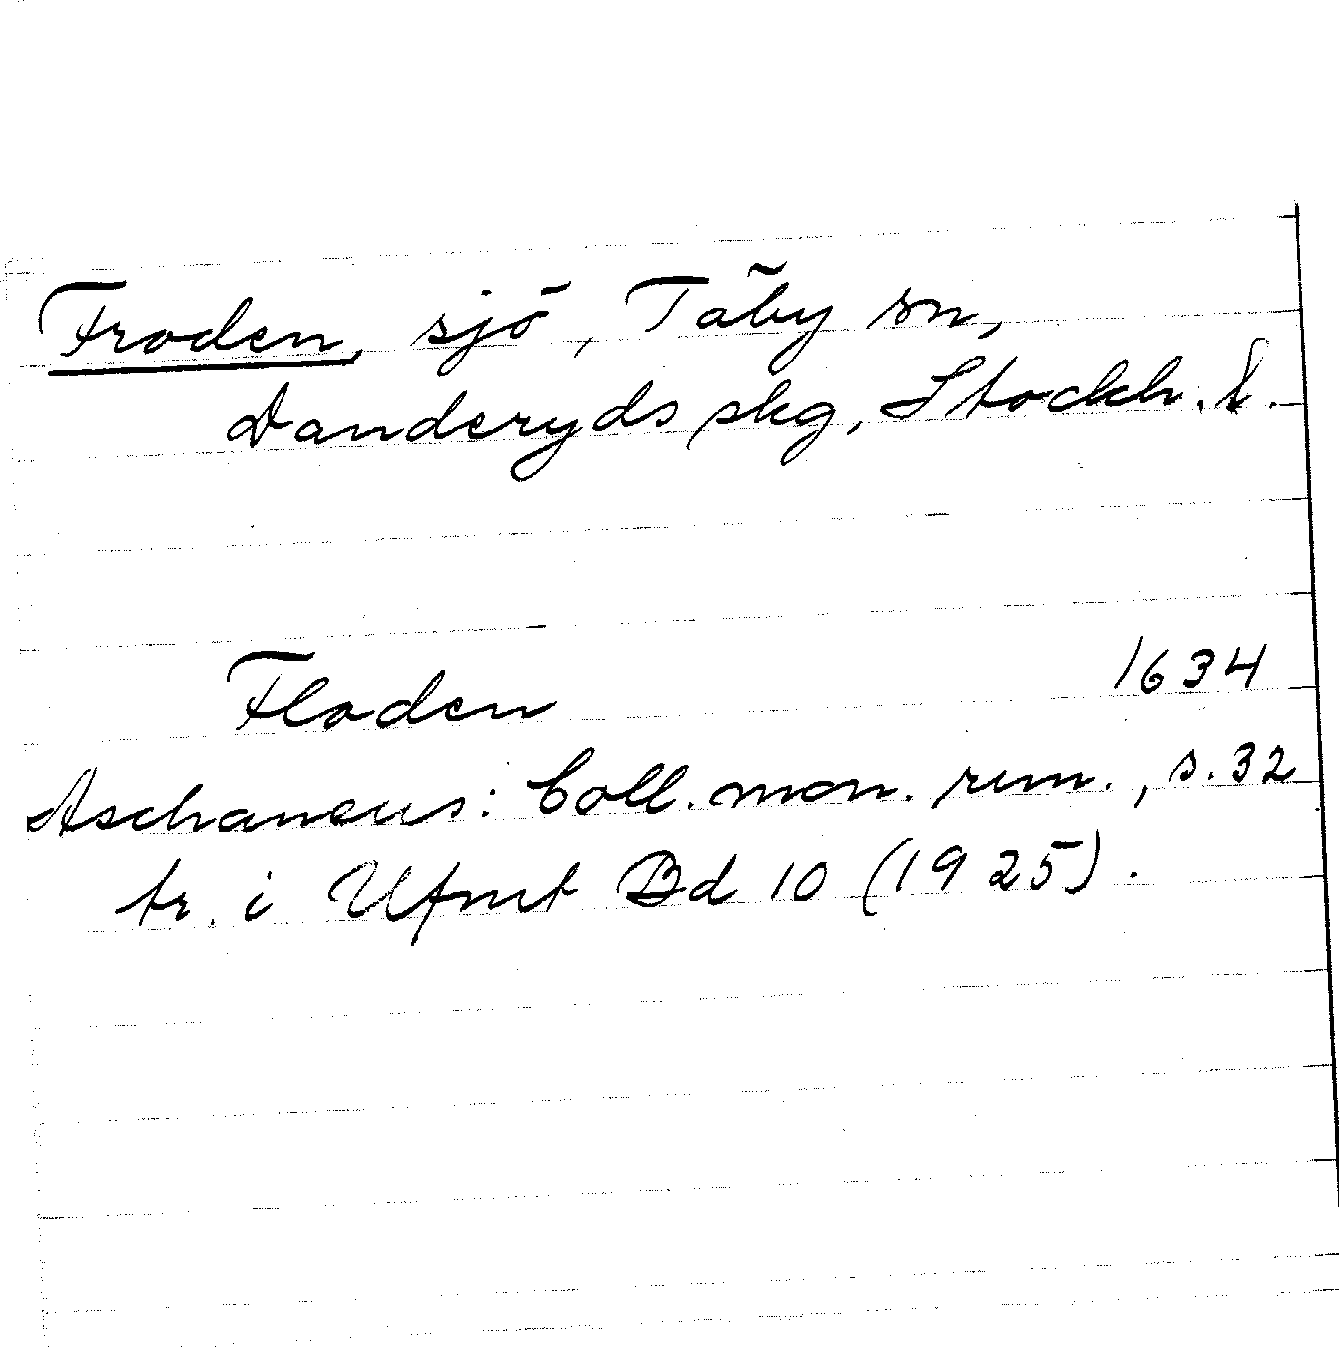 Froden, sjö, Täby sn,
Danderyds skg, Stockh. l.
Floden 1634
Aschaneus: Coll. mon. rum., s. 32
tr. i Ufmt Bd 10 (1925).